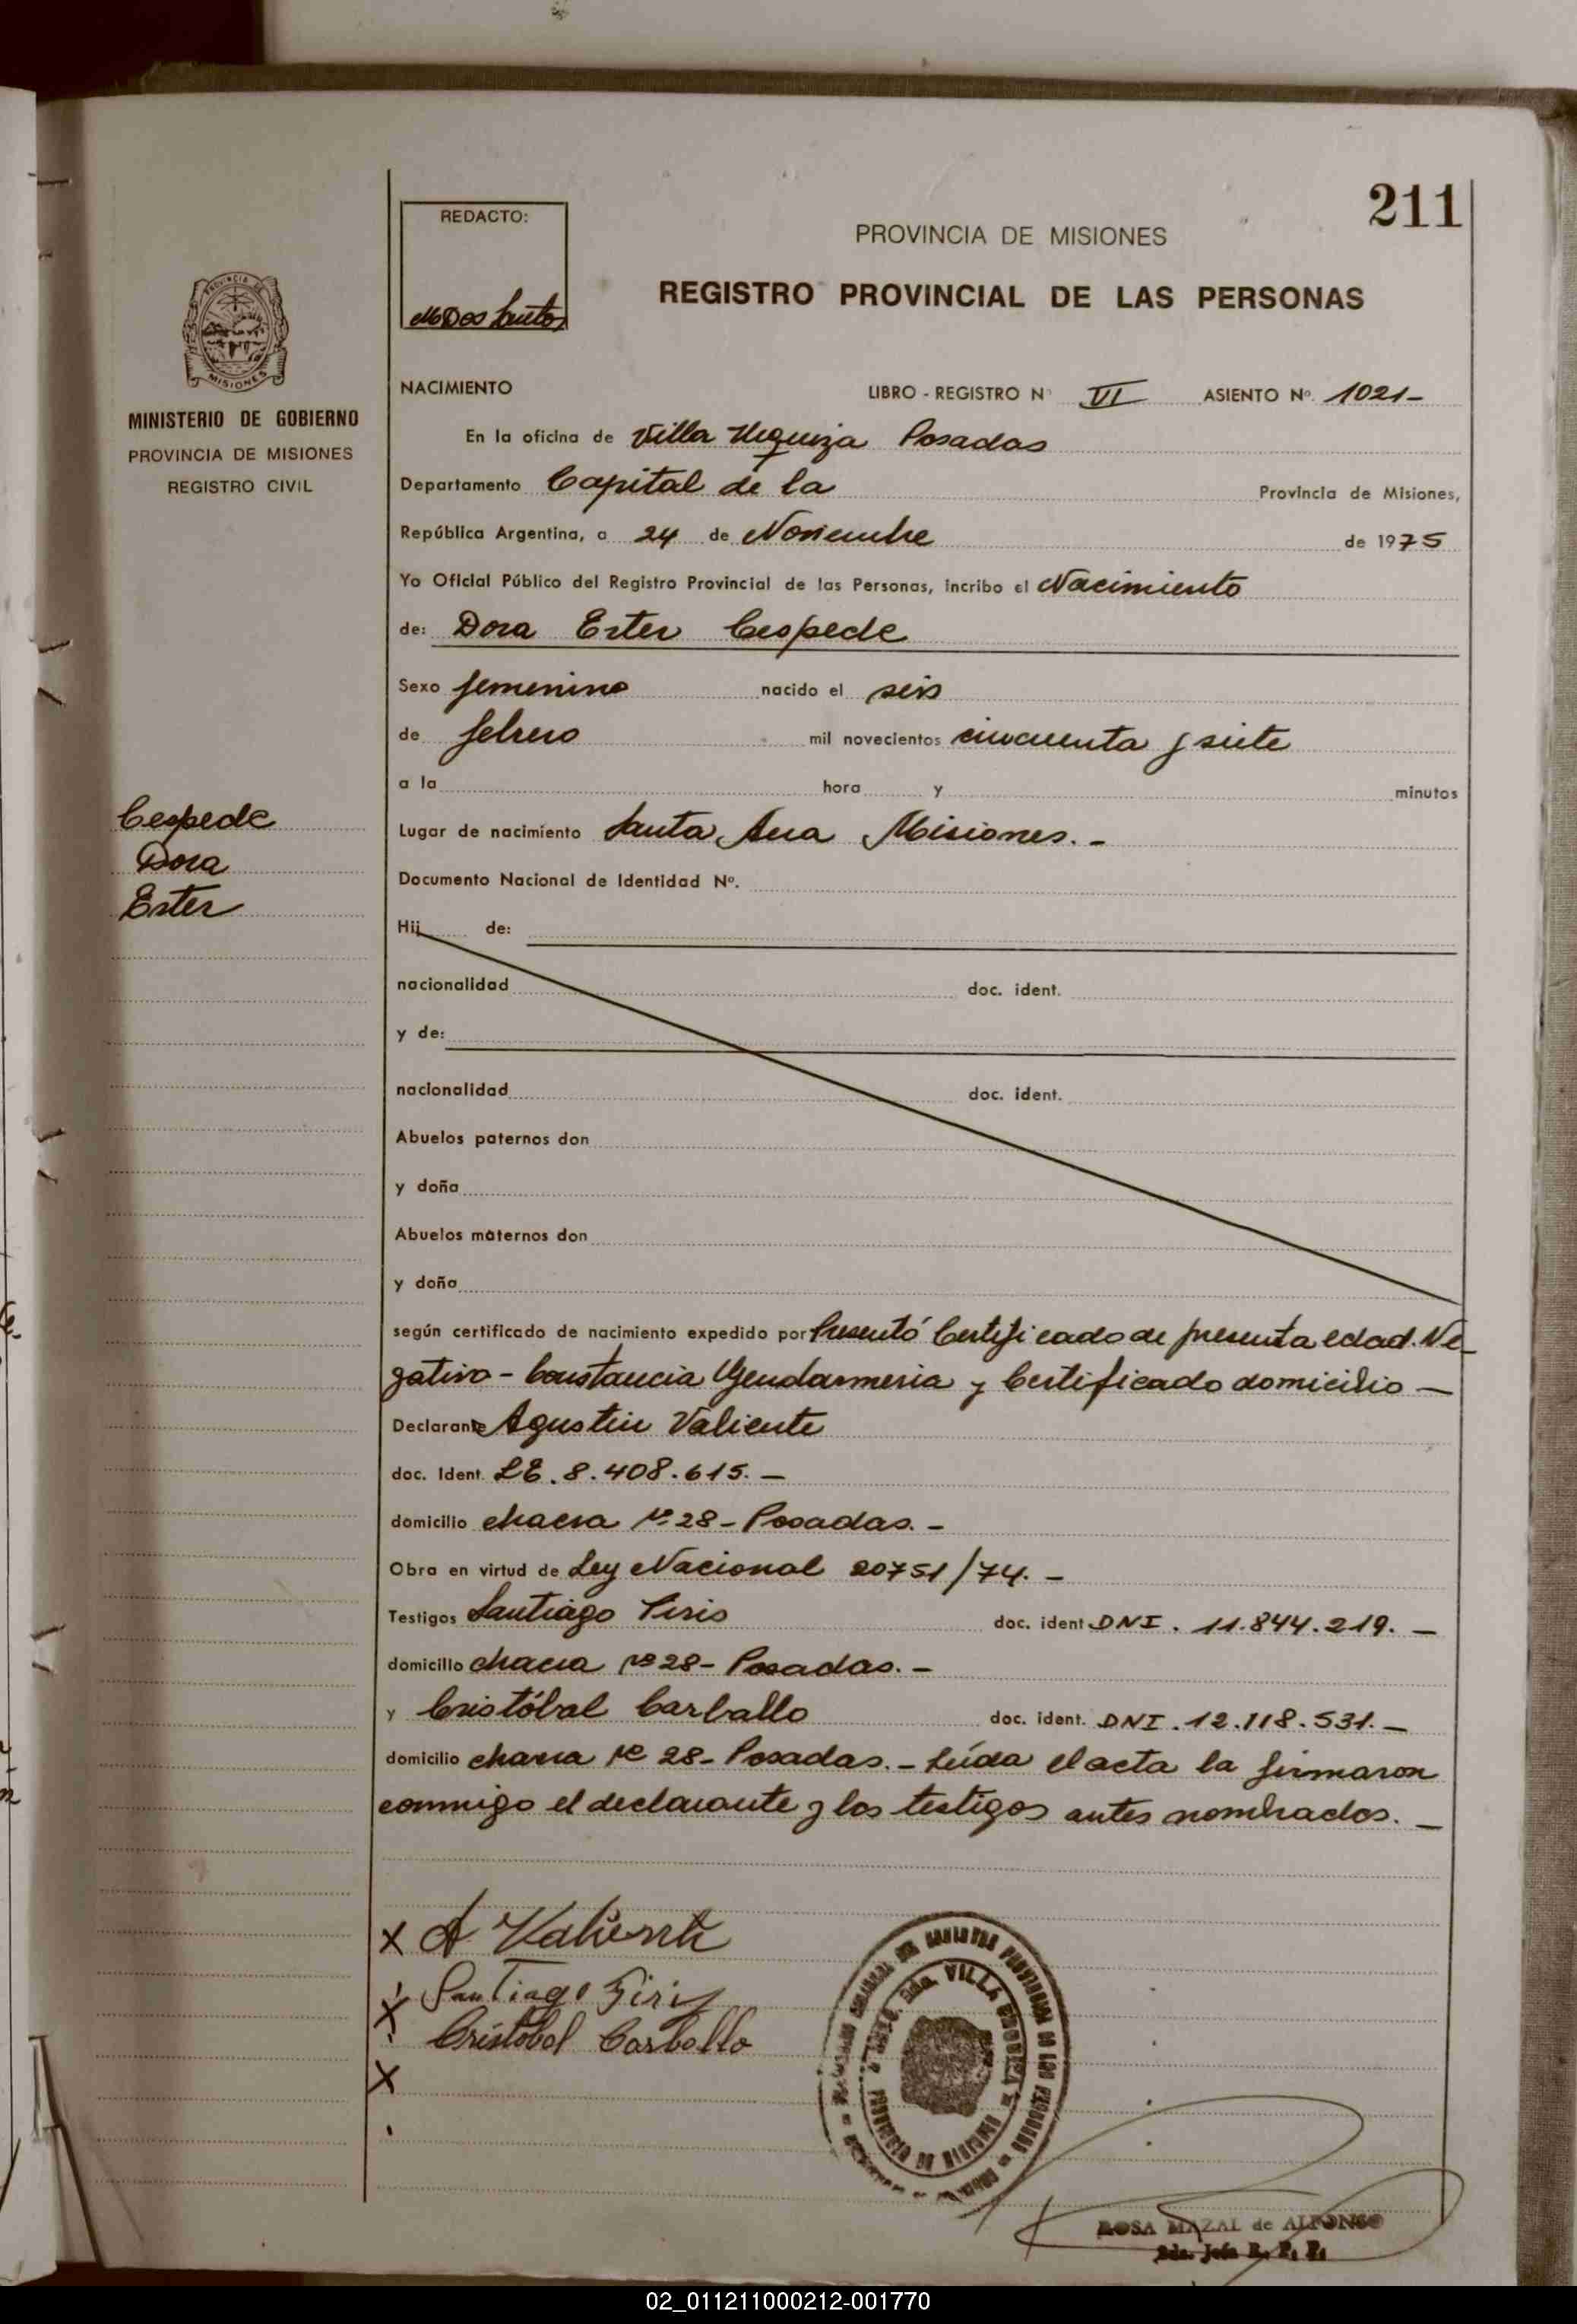 211
REDACTO:
M Dos Santos
PROVINCIA DE MISIONES
REGISTRO PROVINCIAL DE LAS PERSONAS
MISIONES
MINISTERIO DE GOBIERNO
PROVINCIA DE MISIONES
REGISTRO CIVIL
NACIMIENTO LIBRO - REGISTRO Nº VI ASIENTO Nº. 1021-
En la oficina de Villa Urquiza Posadas
Departamento Capital de la Provincia de Misiones,
República Argentina, a 24 de Noviembre de 1975
Yo Oficial Público del Registro Provincial de las Personas, incribo el Nacimiento
de: Dora Ester Cespede
Sexo femenino nacido el seis
de febrero mil novecientos cincuenta y siete
a la hora y minutos
Cespede
Dora
Ester
Lugar de nacimiento Santa Ana Misiones. -
Documento Nacional de Identidad Nº.
Hij de:
nacionalidad doc. ident.
y de:
nacionalidad doc. ident.
Abuelos paternos don
y doña
Abuelos maternos don
y doña
según certificado de nacimiento expedido por Presentó Certificado de presunta edad. Ne-
gativo - Constancia Gendarmeria y Certificado domicilio -
Declarante Agustin Valiente
doc. Ident. LE. 8.408.615. -
domicilio chacra Nº 28 - Posadas. -
Obra en virtud de Ley Nacional 20751/74. -
Testigos Santiago Piris doc. ident DNI. 11.844.219. -
domicilio chacra Nº 28 - Posadas. -
y Cristóbal Carballo doc. ident. DNI. 12.118.531. -
domicilio chacra Nº 28 - Posadas. - Leída el acta la firmaron
conmigo el declarante y los testigos antes nombrados. -
X A Valiente
X Santiago Piris
Cristobal Carballo
X
VILLA URQUIZA
ROSA MAZAL de ALFONSO
02_011211000212-001770